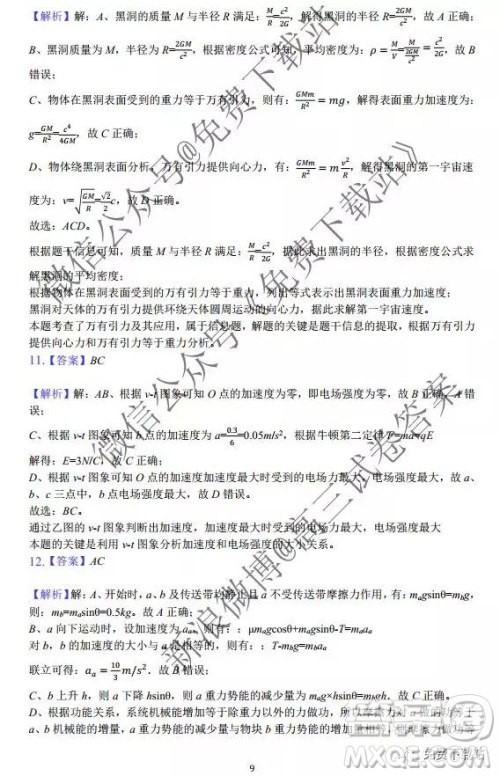 【解析】解：A、黑洞的质量 M 与半径 R 满足：M/R=c²/2G，解得黑洞的半径 R=2GM/c²，故 A 正确；
B、黑洞质量为 M，半径为 R=2GM/c²，根据密度公式可知，平均密度为：ρ=M/V=
故 B
错误；
C、物体在黑洞表面受到的重力等于万有引力，则有：GMm/R²=mg，解得表面重力加速度为：
g=GM/R²=c⁴/4GM，故 C 正确；
D、物体绕黑洞表面分析，万有引力提供向心力，有：GMm/R²=m v²/R，解得黑洞的第一宇宙速
度为：v=√GM/R=√2/2 c，故 D 正确。
故选：ACD。
根据题干信息可知，质量 M 与半径 R 满足：M/R=c²/2G，据此求出黑洞的半径，根据密度公式求
解黑洞的平均密度；
根据物体在黑洞表面受到的万有引力等于重力，列出等式表示出黑洞表面重力加速度；
黑洞对天体的万有引力提供环绕天体圆周运动的向心力，据此求解第一宇宙速度。
本题考查了万有引力及其应用，属于信息题，解题的关键是题干信息的提取，根据万有引力
提供向心力和万有引力等于重力分析。
11.【答案】BC
【解析】解：AB、根据 v-t 图象可知 O 点的加速度为零，即电场强度为零，故 B 正确，A 错
误；
C、根据 v-t 图象可知 b 点的加速度为 a=0.3/6=0.05m/s²，根据牛顿第二定律 F=ma=qE
解得：E=3N/C，故 C 正确；
D、根据 v-t 图象可知 O 点的加速度加速度最大时受到的电场力最大，电场强度最大，故 a、
b、c 三点中，b 点电场强度最大，故 D 错误。
故选：BC。
通过乙图的 v-t 图象判断出加速度，加速度最大时受到的电场力最大，电场强度最大
本题的关键是利用 v-t 图象分析加速度和电场强度的大小关系。
12.【答案】AC
【解析】解：A、开始时，a、b 及传送带均静止且 a 不受传送带摩擦力作用，有：mₐgsinθ=m_bg，
则：m_b=mₐsinθ=0.5kg。故 A 正确；
B、a 向下运动时，设加速度为 aₐ，则有：：μmₐgcosθ+mₐgsinθ-T=mₐaₐ
对 b，b 的加速度的大小与 a 是相等的，则有：：T-m_bg=m_baₐ
联立可得：aₐ=10/3 m/s²．故 B 错误；
C、b 上升 h，则 a 下降 hsinθ，则 a 重力势能的减少量为 mₐg×hsinθ=m_bgh．故 C 正确；
D、根据功能关系，系统机械能增加等于除重力以外的力做功，所以摩擦力对 a 做的功等于
a、b 机械能的增量，a 重力势能的减少量与物块 b 重力势能的增加量相等，则摩擦力做功等
9
微信公众号@免费下载站
微信公众号《免费下载站》
新浪微博@高三试卷答案
免费下载站